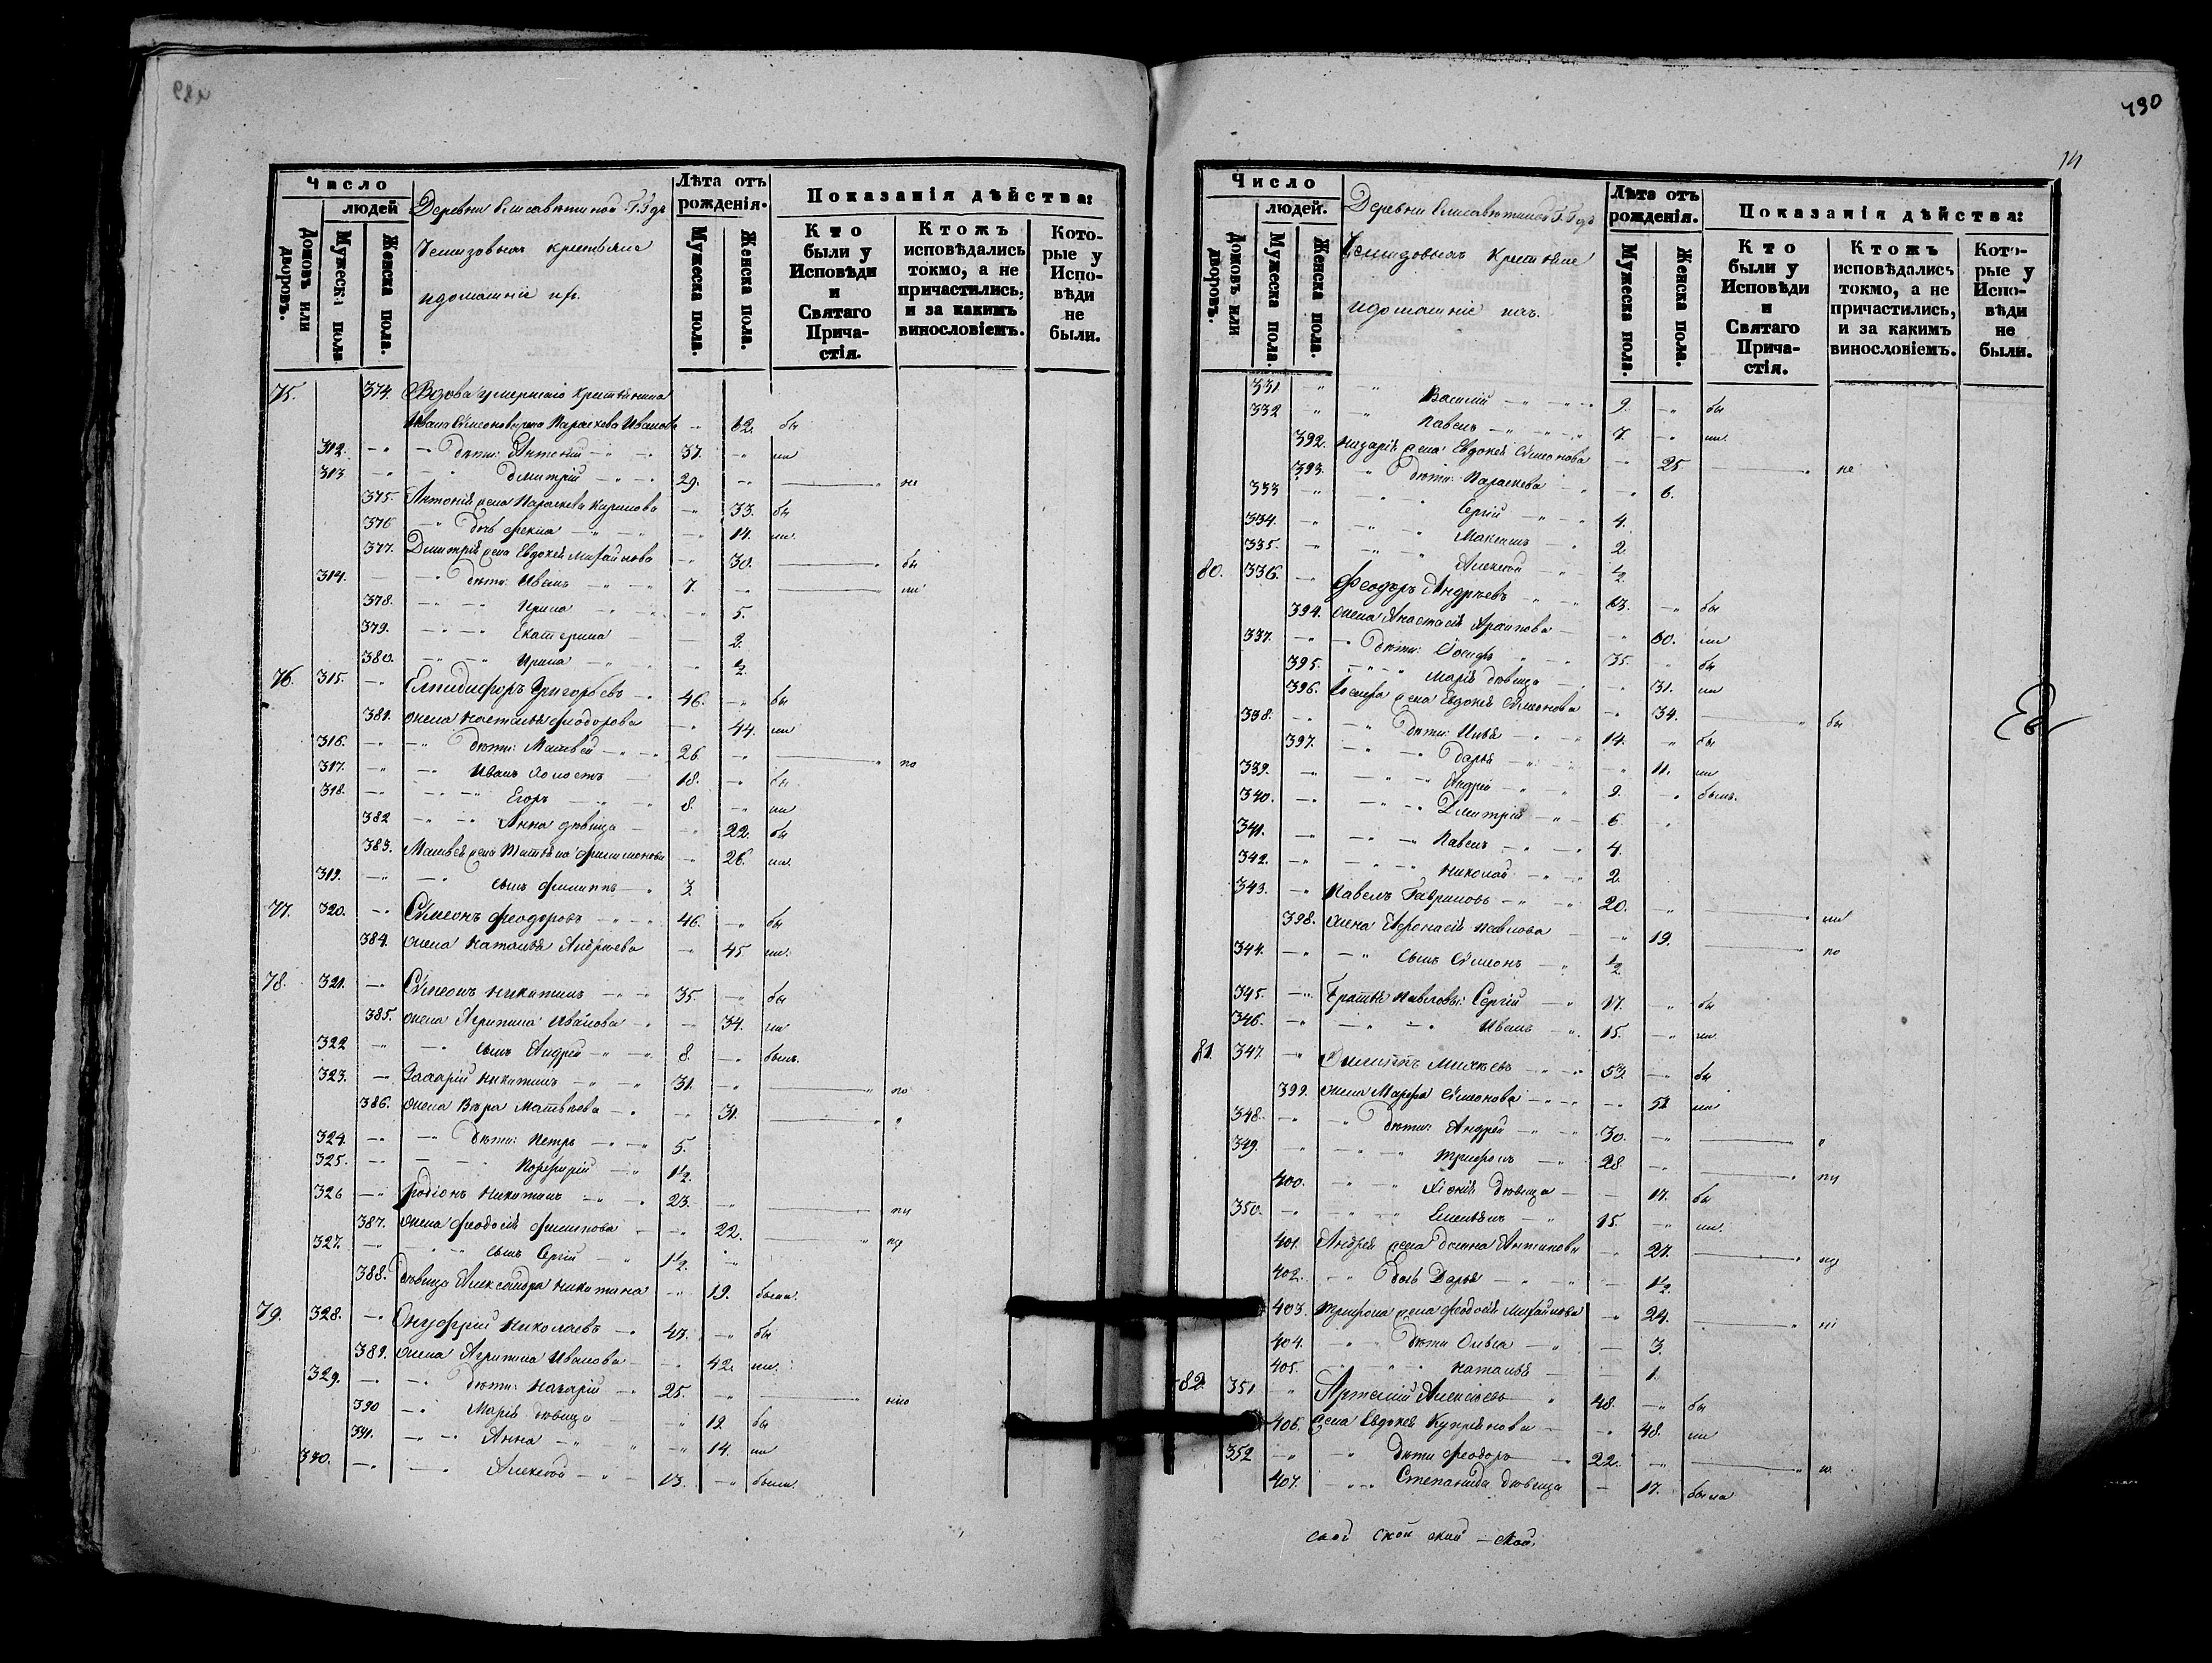 490
14
Число
людей
Домовъ или дворовъ.
Мужеска пола.
Женска пола.
Деревни Елисаветиной Г. Г дъ
Демидовыхъ крестьяне
и домашніе ихъ.
Лѣта отъ рожденія.
Мужеска пола.
Женска пола.
Показанія дѣйства:
Кто были у Исповѣди и Святаго Причастія.
Ктожъ исповѣдались токмо, а не причастились, и за какимъ винословіемъ.
Которые у Исповѣди не были.
75. 374. Вдова умершаго крестьянина
Ивана Сѵмеонова жена Параскева Иванова 62. бы
312. дѣти: Антоній 37. ли
313 Димитрій 29. не
375. Антонія жена Параскева Карпова 33. бы
376 дочь Фекла 14. ли
377. Дмитрія жена Евдокія Михайлова 30. бы
314. дѣти: Иванъ 7. ли
378. Ирина 5.
379. Екатерина 2.
380. Ирина ½
76. 315. Елпидифоръ Григорьевъ 46. бы
381. жена Наталья Феодорова 44. ли
316. дѣти: Матвей 26. по
317. Иванъ холостъ 18. бы
318. Егоръ 8. ли
382 Анна дѣвица 22. бы
383. Матвея жена Татьяна Филимонова 26. ли
319. сынъ Филиппъ 3.
77. 320. Сѵмеонъ Феодоровъ 46. бы
384. жена Наталья Андреева 45 ли.
78. 321. Сѵмеонъ Никитинъ 35. бы
385. жена Агрипина Иванова 34. ли
322 сынъ Андрей 8. былъ.
323. Захарій Никитинъ 31. по
386. жена Вѣра Матвѣева 31.
324. дѣти: Петръ 5.
325. Порфирій 1½
326 Родіонъ Никитинъ 23.
387. жена Феодосія Филипова 22.
327. сынъ Сергій 1½
388. Дѣвица Александра Никитина 19. была.
79. 328. Онуфрій Николаевъ 47. бы
389. жена Агрипина Иванова 42. ли.
329. дѣти: Назарій 25.
390 Марія дѣвица 19. бы
391. Анна 14. ли
330. Алексѣй 13. были.
Число
людей.
Домовъ или дворовъ.
Мужеска пола.
Женска пола.
Деревни Елисаветиной Г. Г дъ
Демидовыхъ крестьяне
и домашніе ихъ.
Лѣта отъ рожденія.
Мужеска пола.
Женска пола.
Показанія дѣйства:
Кто были у Исповѣди и Святаго Причастія.
Ктожъ исповѣдались токмо, а не причастились, и за какимъ винословіемъ.
Которые у Исповѣди не были.
331 Василій 9. бы
332 Павелъ 7. ли.
392. Назарія жена Евдокія Сѵмеонова 25 не
393. дѣти: Параскева 6.
333 Сергій 4.
334. Максимъ 2
335. Алексѣй ½
80. 336. Феодоръ Андреевъ 63. бы
394. жена Анастасія Архипова 60. ли
337. дѣти: Іосифъ 35. бы
395. Марія дѣвица 31. ли
396. Іосифа жена Евдокія Сѵмеонова 34. бы
338. дѣти: Илья 14. бы
397. Дарья 11. ли
339. Андрей 9. былъ.
340. Дмитрій 6
341. Павелъ 4.
342. Николай 2.
343. Павелъ Гавриловъ 20. ли
398. жена Афонасія Павлова 19. по
344. сынъ Сѵмеонъ ½
345. Братья Павловы: Сергій 17. бы
346. Иванъ 15. ли.
81. 347. Филиппъ Михѣевъ 53 бы
399. жена Марфа Сѵмеонова 51 ли
348. дѣти: Андрей 30.
349. Трифонъ 28
400. Хіонія дѣвица 17. бы
350. Емельянъ 15. ли.
401. Андрея жена Домна Антипова 27.
402. дочь Дарья 1½
403. Трифона жена Феодосія Михайлова 24.
404. дѣти Ольга 3.
405. Наталья 1.
82. 351 Артемій Алексѣевъ 48. бы
406. жена Евдокія Купріянова 48. ли
352 дѣти Феодоръ 22.
407. Степанида дѣвица 17. была
ской ской ской